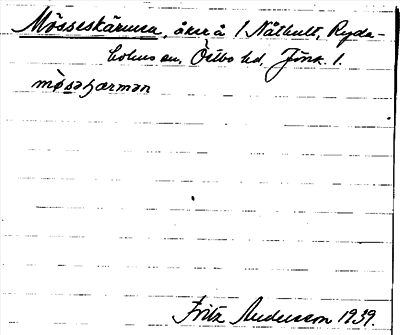 Mösseskärnen, åker å 1 Nålhult, Ryda-
holms sn, Östbo hd, Jönk. l.
mösəʂærnən
Fritz Andersson 1939.